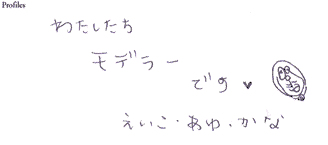 Profiles
わたしたち
モデラー
です♥
えいこ・あゆ・かな